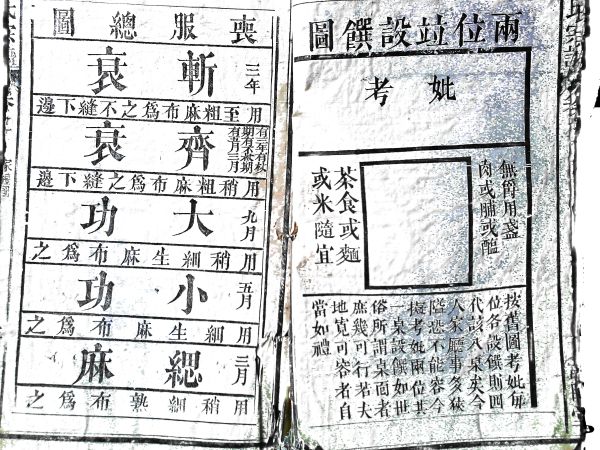 兩位竝設饌圖
妣考
無爵用盞
肉或脯或醢
茶食或麵
或米隨宜
按舊圖考妣每
位各設饌則四
代該八桌矣今
人家廳事多狹
隘恐不能容今
擬考妣兩位共
一桌設饌如世
俗所謂桌面者
庶幾可行若夫
地寬可容者自
當如禮
喪服總圖
三年
斬衰
用至粗麻布爲之不縫下邊
有三年有杖
期有不杖期
有五月三月
齊衰
用稍粗麻布爲之縫下邊
九月
大功
用稍細生麻布爲之
五月
小功
用細生麻布爲之
三月
緦麻
用稍細熟布爲之